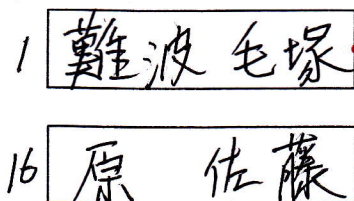 1 難波 毛塚
16 原 佐藤